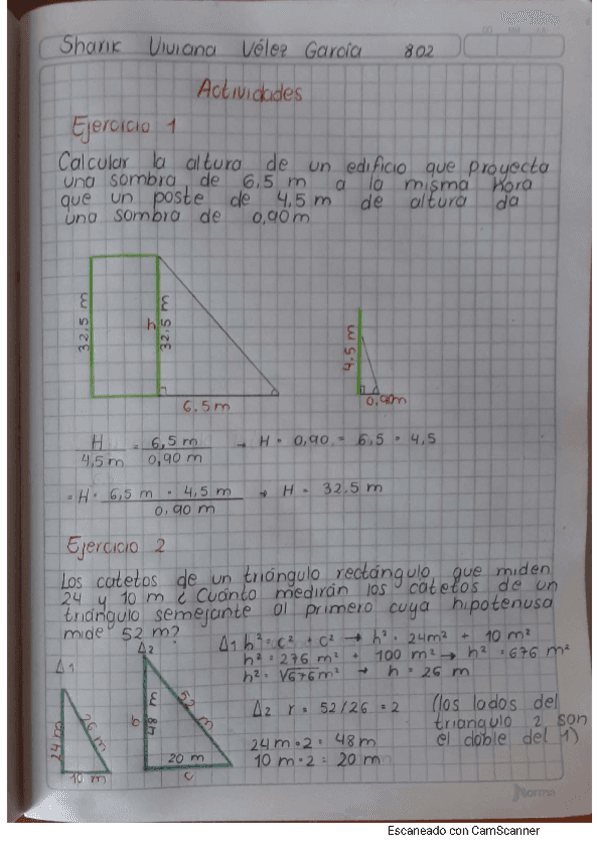 Sharik Viviana Vélez García 802
Actividades
Ejercicio 1
Calcular la altura de un edificio que proyecta
una sombra de 6,5 m a la misma Hora
que un poste de 4,5 m de altura da
una sombra de 0,90 m
32.5 m
h
32.5 m
6.5 m
4.5 m
0,90m
H / 4,5 m = 6,5 m / 0,90 m → H · 0,90 = 6,5 · 4,5
= H · 6,5 m · 4,5 m / 0,90 m → H = 32.5 m
Ejercicio 2
Los catetos de un triángulo rectángulo que miden
24 y 10 m ¿Cuánto medirán los catetos de un
triángulo semejante al primero cuya hipotenusa
mide 52 m?
Δ1 h² = c² + c² → h² · 24m² + 10 m²
h² = 276 m² + 100 m² → h² = 676 m²
h² = √676 m² → h = 26 m
Δ1
24 m
26 m
10 m
Δ2
b
48 m
52 m
20 m
c
Δ2 r = 52/26 = 2 (los lados del
triangulo 2 son
el doble del 1)
24 m · 2 = 48 m
10 m · 2 = 20 m
norma
Escaneado con CamScanner